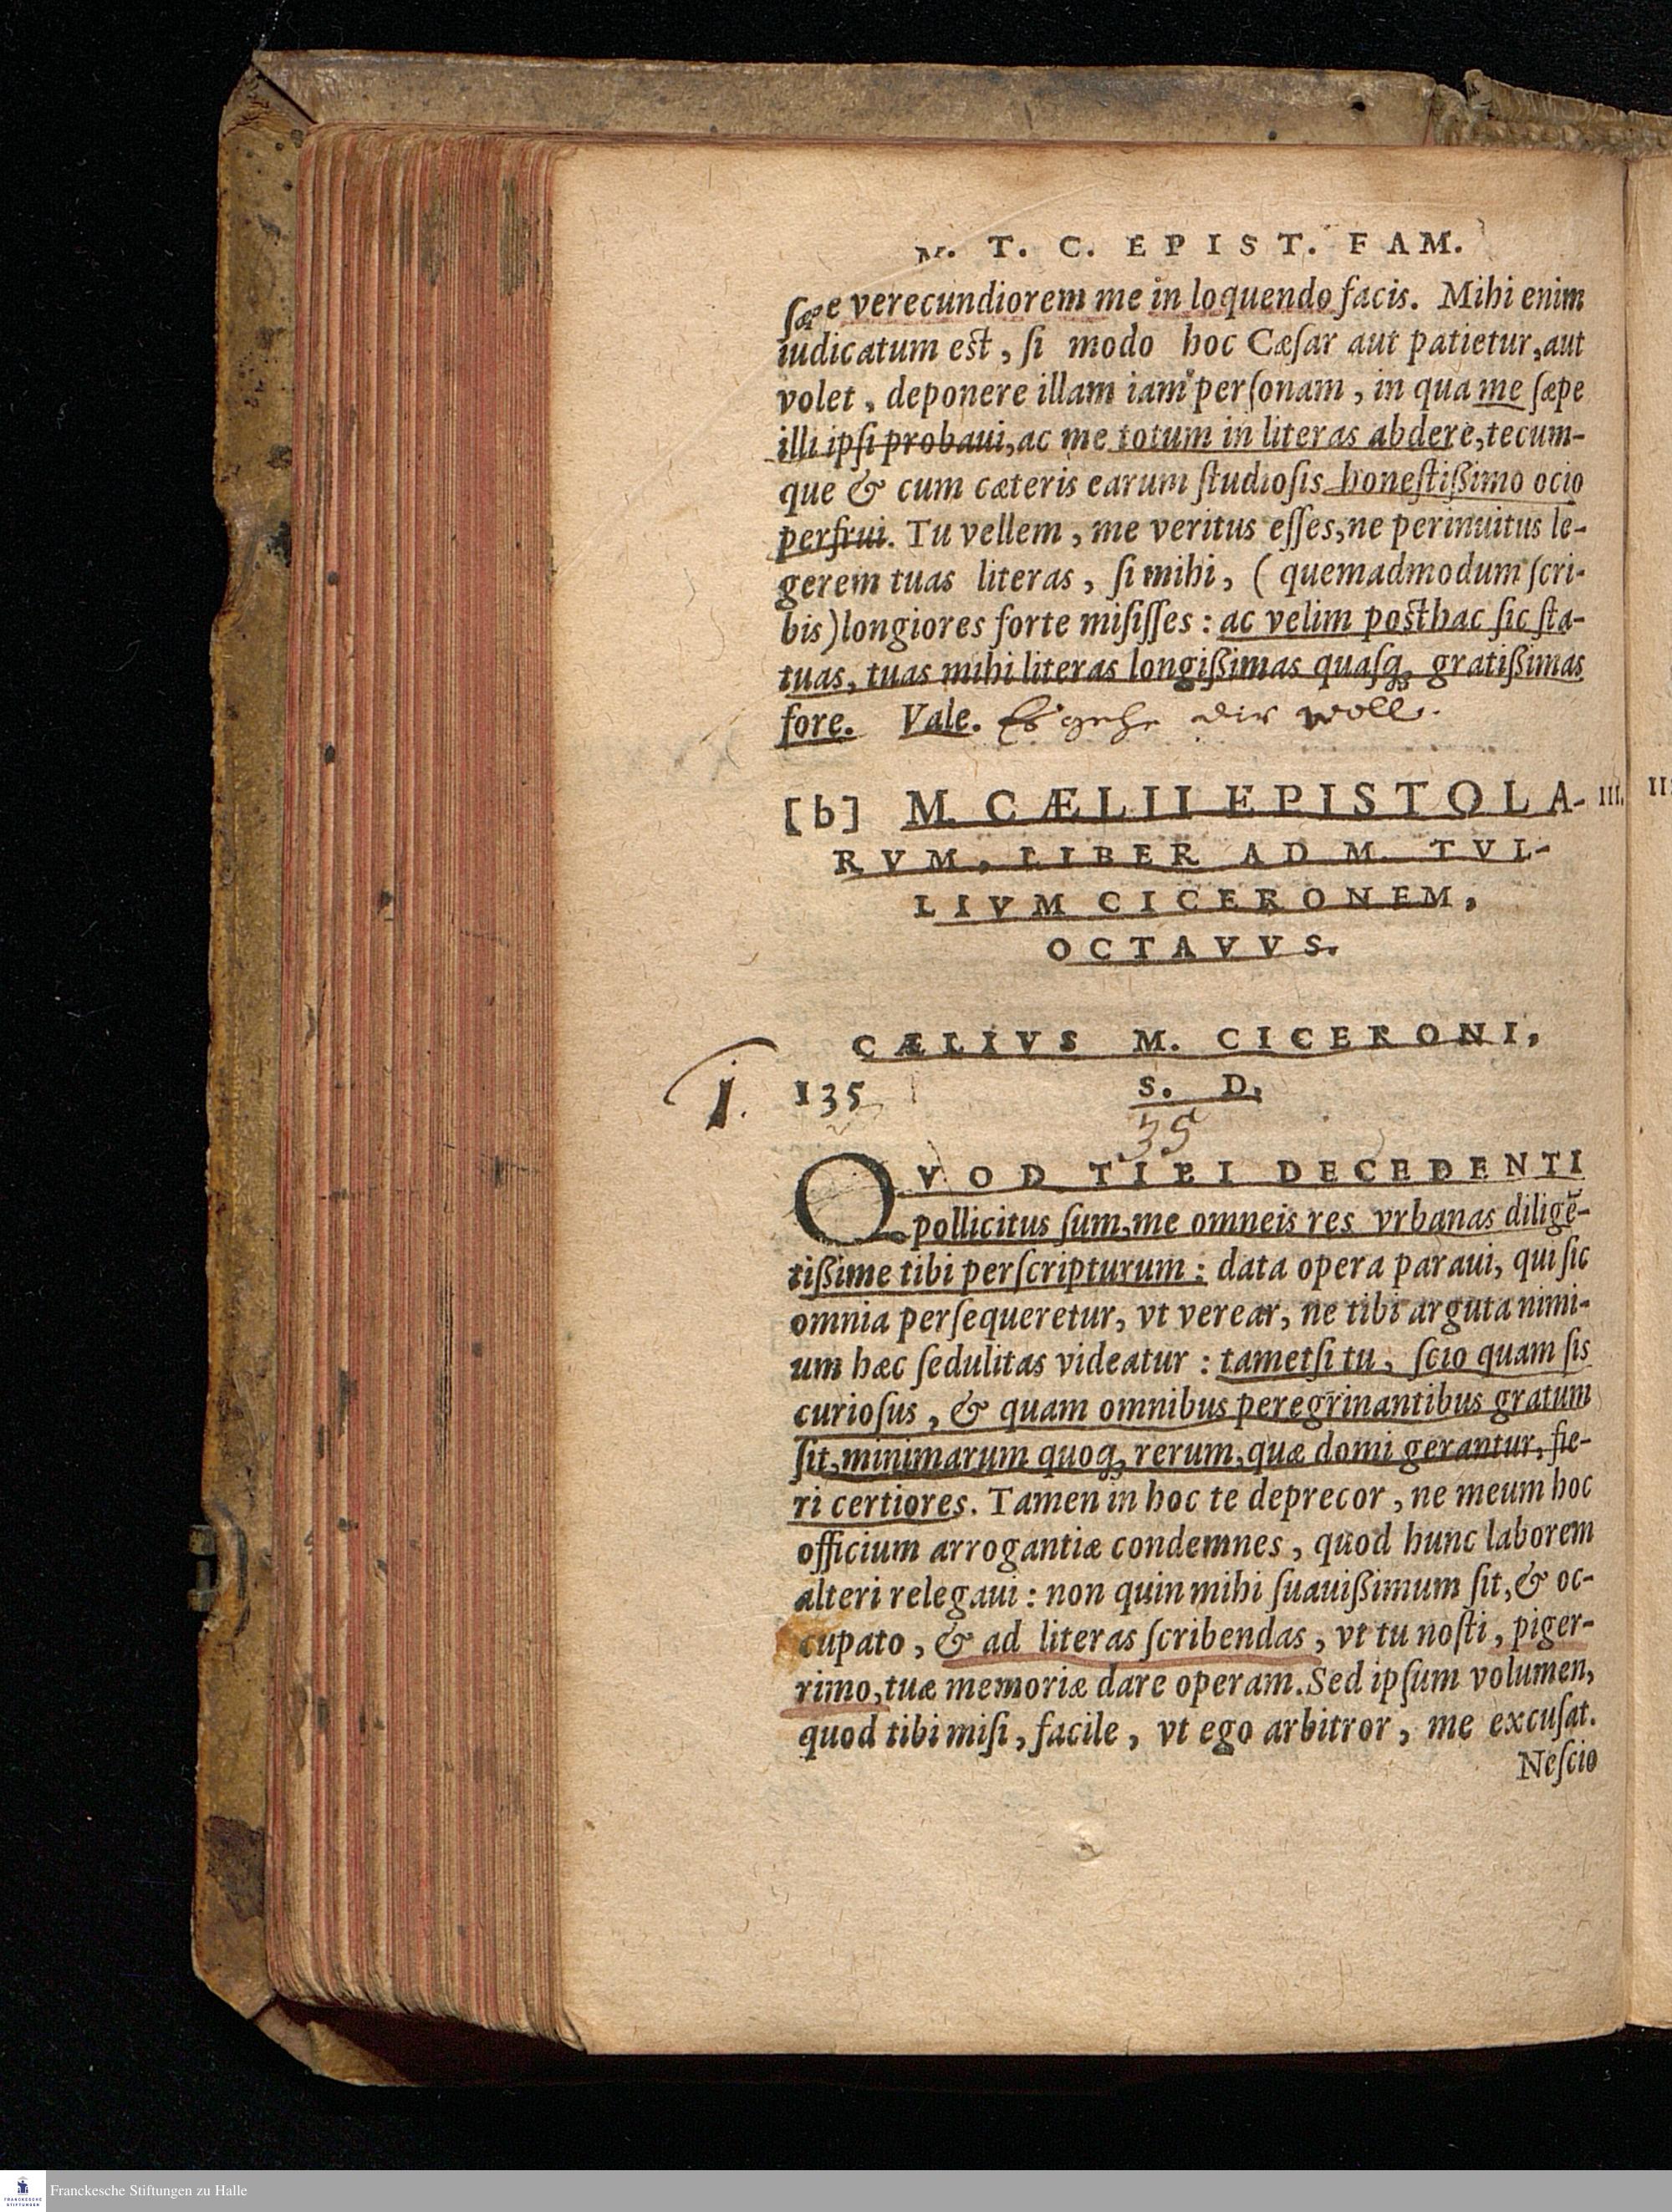 M. T. C. EPIST. FAM.
ſæpe verecundiorem me in loquendo facis. Mihi enim
iudicatum est, ſi modo hoc Cæſar aut patietur, aut
volet, deponere illam iam perſonam, in qua me ſæpe
illi ipſi probaui, ac me totum in literas abdere, tecum-
que & cum cæteris earum ſtudioſis honeſtißimo ocio
perfrui. Tu vellem, me veritus eſſes, ne perinuitus le-
gerem tuas literas, ſi mihi, (quemadmodum ſcri-
bis) longiores forte miſiſſes: ac velim posthac ſic ſta-
tuas, tuas mihi literas longißimas quaſq; gratißimas
fore. Vale. Es gehe dir woll.
[b] M. CÆLII EPISTOLA- III.
RVM, LIBER AD M. TVL-
LIVM CICERONEM,
OCTAVVS.
CÆLIVS M. CICERONI,
j. 135 S. D.
35
QVOD TIBI DECEDENTI
pollicitus ſum, me omneis res vrbanas diligẽ-
tißime tibi perſcripturum: data opera paraui, qui ſic
omnia perſequeretur, vt verear, ne tibi arguta nimi-
um hæc ſedulitas videatur: tametſi tu, ſcio quam ſis
curioſus, & quam omnibus peregrinantibus gratum
ſit, minimarum quoq; rerum, quæ domi gerantur, fie-
ri certiores. Tamen in hoc te deprecor, ne meum hoc
officium arrogantiæ condemnes, quod hunc laborem
alteri relegaui: non quin mihi ſuauißimum ſit, & oc-
cupato, & ad literas ſcribendas, vt tu noſti, piger-
rimo, tuæ memoriæ dare operam. Sed ipſum volumen,
quod tibi miſi, facile, vt ego arbitror, me excuſat.
Neſcio
II
Franckesche Stiftungen zu Halle